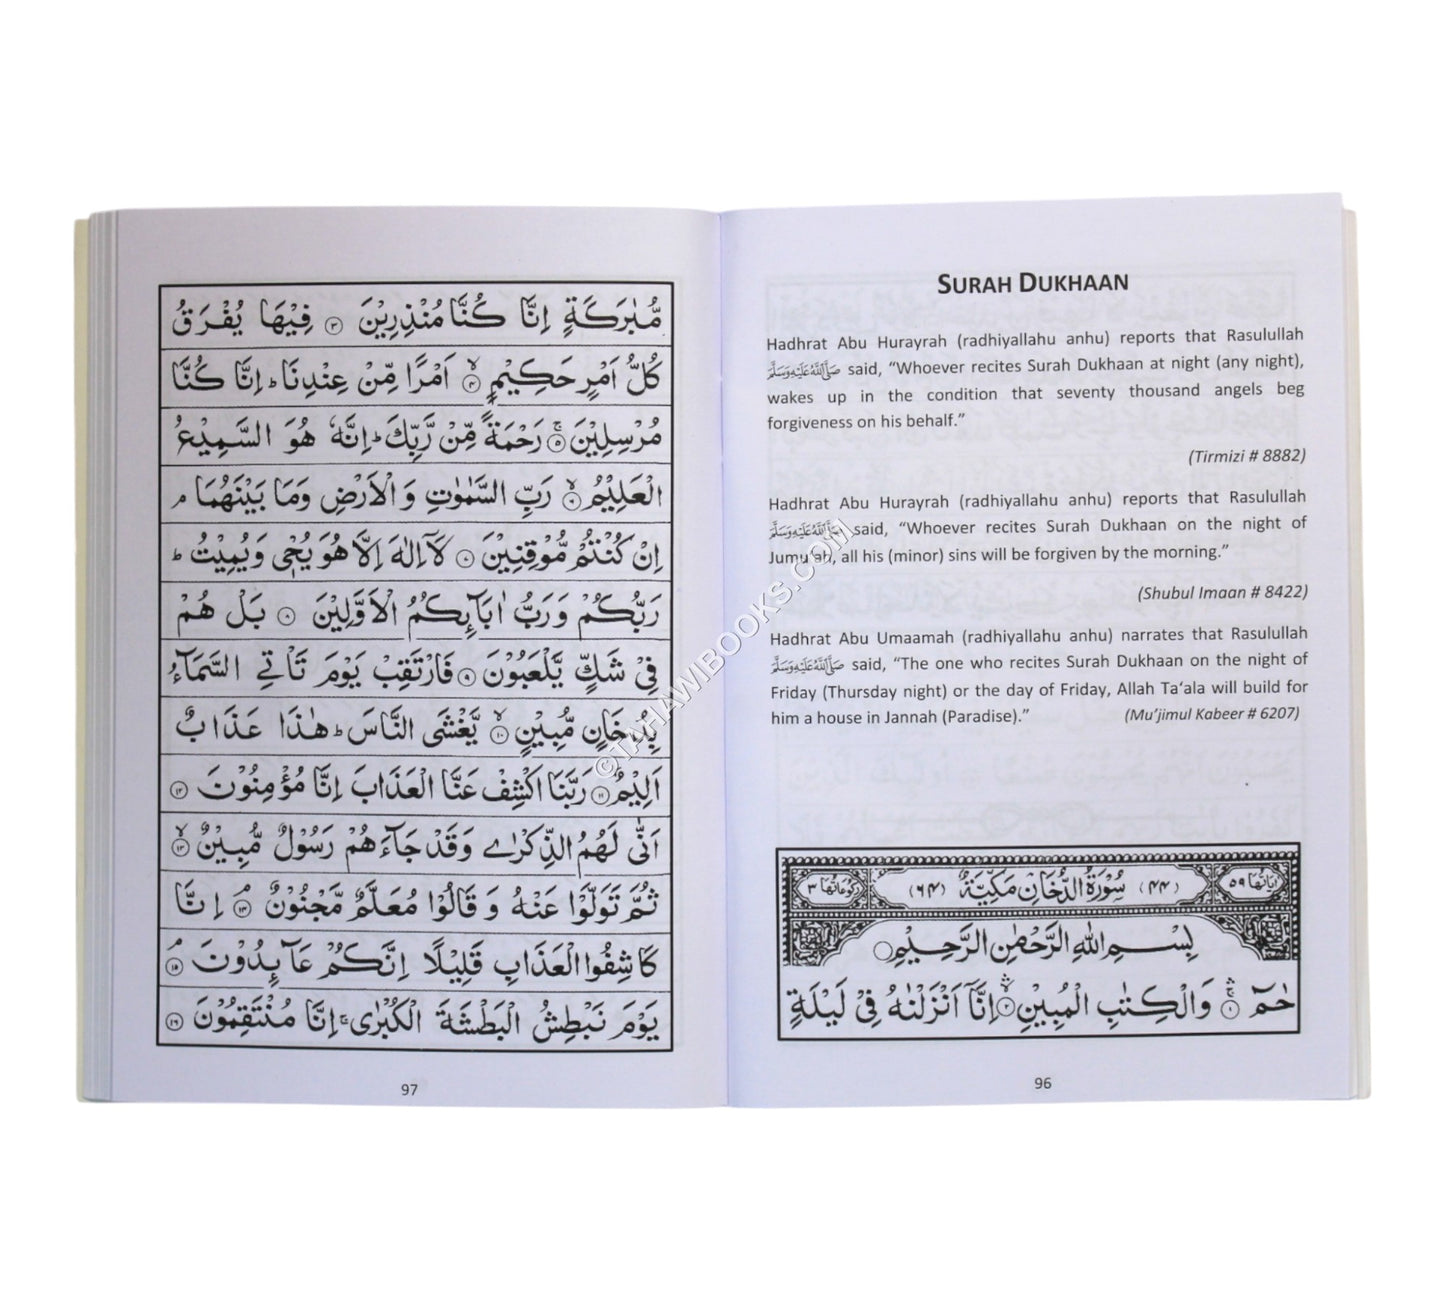 SURAH DUKHAAN
Hadhrat Abu Hurayrah (radhiyallahu anhu) reports that Rasulullah
صَلَّى اللَّهُ عَلَيْهِ وَسَلَّمَ said, “Whoever recites Surah Dukhaan at night (any night),
wakes up in the condition that seventy thousand angels beg
forgiveness on his behalf.”
(Tirmizi # 8882)
Hadhrat Abu Hurayrah (radhiyallahu anhu) reports that Rasulullah
صَلَّى اللَّهُ عَلَيْهِ وَسَلَّمَ said, “Whoever recites Surah Dukhaan on the night of
Jumu‘ah, all his (minor) sins will be forgiven by the morning.”
(Shubul Imaan # 8422)
Hadhrat Abu Umaamah (radhiyallahu anhu) narrates that Rasulullah
صَلَّى اللَّهُ عَلَيْهِ وَسَلَّمَ said, “The one who recites Surah Dukhaan on the night of
Friday (Thursday night) or the day of Friday, Allah Ta‘ala will build for
him a house in Jannah (Paradise).” (Mu’jimul Kabeer # 6207)
اٰيَاتُهَا ٥٩ (٤٤) سُوْرَةُ الدُّخَانِ مَكِّيَّةٌ (٦٤) رُكُوْعَاتُهَا ٣
بِسْمِ اللهِ الرَّحْمٰنِ الرَّحِيْمِ
حٰمٓ ۚ ١ وَالْكِتٰبِ الْمُبِيْنِ ۙ ٢ اِنَّآ اَنْزَلْنٰهُ فِيْ لَيْلَةٍ
96
مُّبٰرَكَةٍ اِنَّا كُنَّا مُنْذِرِيْنَ ٣ فِيْهَا يُفْرَقُ
كُلُّ اَمْرٍ حَكِيْمٍ ۙ ٤ اَمْرًا مِّنْ عِنْدِنَا ؕ اِنَّا كُنَّا
مُرْسِلِيْنَ ۚ ٥ رَحْمَةً مِّنْ رَّبِّكَ ؕ اِنَّهٗ هُوَ السَّمِيْعُ
الْعَلِيْمُ ۙ ٦ رَبِّ السَّمٰوٰتِ وَالْاَرْضِ وَمَا بَيْنَهُمَا ۘ
اِنْ كُنْتُمْ مُّوْقِنِيْنَ ٧ لَآ اِلٰهَ اِلَّا هُوَ يُحْيٖ وَيُمِيْتُ ؕ
رَبُّكُمْ وَرَبُّ اٰبَآئِكُمُ الْاَوَّلِيْنَ ٨ بَلْ هُمْ
فِيْ شَكٍّ يَّلْعَبُوْنَ ٩ فَارْتَقِبْ يَوْمَ تَاْتِي السَّمَآءُ
بِدُخَانٍ مُّبِيْنٍ ۙ ١٠ يَّغْشَى النَّاسَ ؕ هٰذَا عَذَابٌ
اَلِيْمٌ ١١ رَبَّنَا اكْشِفْ عَنَّا الْعَذَابَ اِنَّا مُؤْمِنُوْنَ ١٢
اَنّٰى لَهُمُ الذِّكْرٰى وَقَدْ جَآءَهُمْ رَسُوْلٌ مُّبِيْنٌ ۙ ١٣
ثُمَّ تَوَلَّوْا عَنْهُ وَقَالُوْا مُعَلَّمٌ مَّجْنُوْنٌ ۘ ١٤ اِنَّا
كَاشِفُوا الْعَذَابِ قَلِيْلًا اِنَّكُمْ عَآئِدُوْنَ ۘ ١٥
يَوْمَ نَبْطِشُ الْبَطْشَةَ الْكُبْرٰى ۚ اِنَّا مُنْتَقِمُوْنَ ١٦
97
©TAHAWIBOOKS.COM